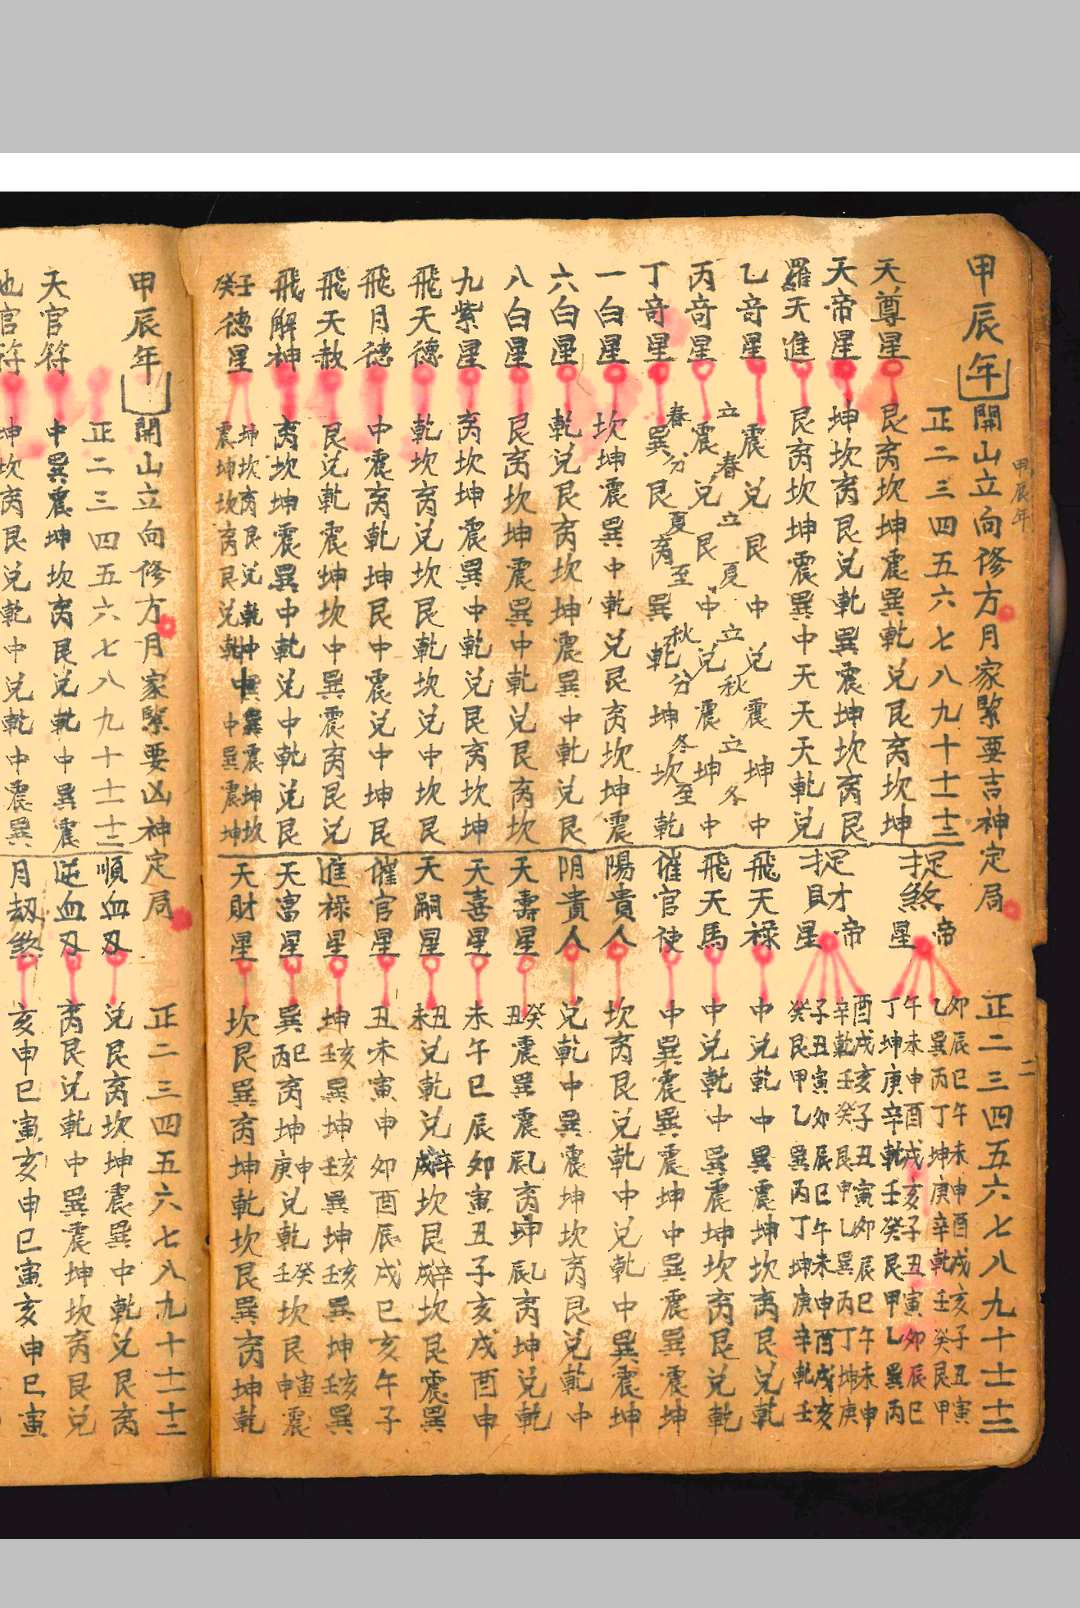 甲辰年開山立向修方月家緊要吉神定局
甲辰年
二
正二三四五六七八九十十一十二
天尊星 艮离坎坤震巽乾兌艮离坎坤
天帝星 坤坎离艮兌乾巽震坤坎离艮
羅天進 艮离坎坤震巽中天天天乾兌
乙奇星 立春 震兌艮 立夏 中兌震 立秋 坤中 立冬
丙奇星 震兌艮中兌震坤中
丁奇星 春分 巽艮离 夏至 巽乾 秋分 坤坎 冬至 乾
一白星 坎坤震巽中乾兌艮离坎坤震
六白星 乾兌艮离坎坤震巽中乾兌艮
八白星 艮离坎坤震巽中乾兌艮离坎
九紫星 离坎坤震巽中乾兌艮离坎坤
飛天德 乾坎离兌坎艮乾坎兌中坎艮
飛月德 中震离乾坤艮中震兌中坤艮
飛天赦 艮兌乾震坤坎中巽震离艮兌
飛解神 离坎坤震巽中乾兌中乾兌艮
壬癸德星
正二三四五六七八九十十一十二
捉煞帝星
卯辰巳午未申酉戌亥子丑寅
乙巽丙丁坤庚辛乾壬癸艮甲
午未申酉戌亥子丑寅卯辰巳
丁坤庚辛乾壬癸艮甲乙巽丙
捉財帝星
酉戌亥子丑寅卯辰巳午未申
辛乾壬癸艮甲乙巽丙丁坤庚
子丑寅卯辰巳午未申酉戌亥
癸艮甲乙巽丙丁坤庚辛乾壬
飛天祿 中兌乾中巽震坤坎离艮兌乾
飛天馬 中兌乾中巽震坤坎离艮兌乾
催官使 中巽震巽震坤中巽震巽震坤
陽貴人 坎离艮兌乾中兌乾中巽震坤
阴貴人 兌乾中巽震坤坎离艮兌乾中
天壽星
天喜星 未午巳辰卯寅丑子亥戌酉申
天嗣星
催官星 丑未寅申卯酉辰戌巳亥午子
進祿星
天富星
天財星 坎艮巽离坤乾坎艮巽离坤乾
甲辰年開山立向修方月家緊要凶神定局
正二三四五六七八九十十一十二
天官符 中巽震坤坎离艮兌乾中巽震
官符 坤坎离艮兌乾中兌乾中震巽
正二三四五六七八九十十一十二
順血刃 兌艮离坎坤震巽中乾兌艮离
逆血刃 离艮兌乾中巽震坤坎离艮兌
月刼煞 亥申巳寅亥申巳寅亥申巳寅